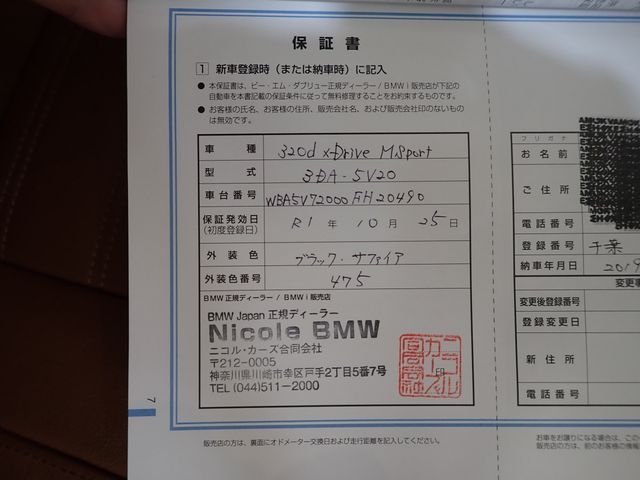 保証書
1 新車登録時（または納車時）に記入
● 本保証書は、ビー・エム・ダブリュー正規ディーラー / BMW i 販売店が下記の
自動車を本書記載の保証条件に従って無料修理することをお約束するものです。
● お客様の氏名、お客様の住所、販売会社名、および販売会社印のないもの
は無効です。
車種 320d xDrive M.Sport
型式 3DA-5V20
車台番号 WBA5V72000FH20490
保証発効日 R1 年 10 月 25 日
(初度登録日)
外装色 ブラック・サファイア
外装色番号 475
BMW 正規ディーラー / BMW i 販売店
BMW Japan 正規ディーラー
Nicole BMW
ニコル・カーズ合同会社
〒212-0005
神奈川県川崎市幸区戸手2丁目5番7号
TEL (044)511-2000
印
販売店の方は、裏面にオドメーター交換日および走行距離を記入してください。
7
フリガナ
お名前
ご住所
電話番号
登録番号 千葉
納車年月日 2019
変更事
変更後登録番号
登録変更日
新住所
電話番号
お車をお譲りになる場合は、この
販売店の方は、前のお客様の情報